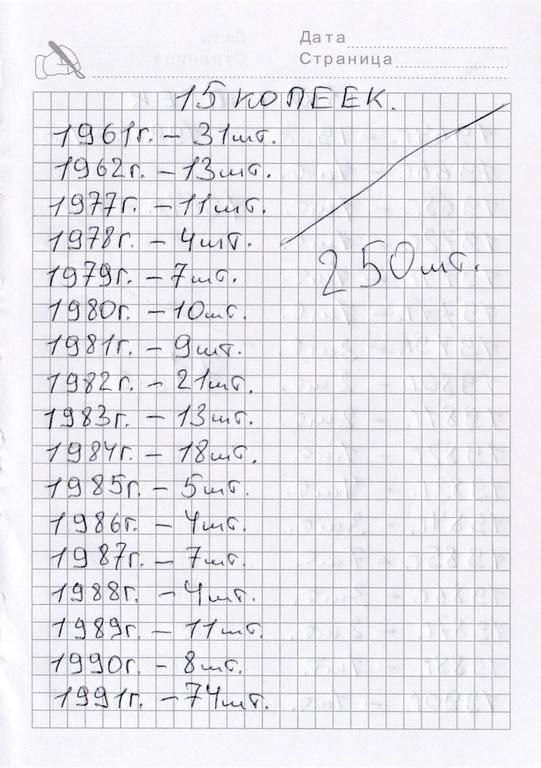 Дата
Страница
15 КОПЕЕК.
1961г. – 31шт.
1962г. – 13шт.
1977г. – 11шт.
1978г. – 4шт.
250шт.
1979г. – 7шт.
1980г. – 10шт.
1981г. – 9шт.
1982г. – 21шт.
1983г. – 13шт.
1984г. – 18шт.
1985г. – 5шт.
1986г. – 4шт.
1987г. – 7шт.
1988г. – 4шт.
1989г. – 11шт.
1990г. – 8шт.
1991г. – 74шт.